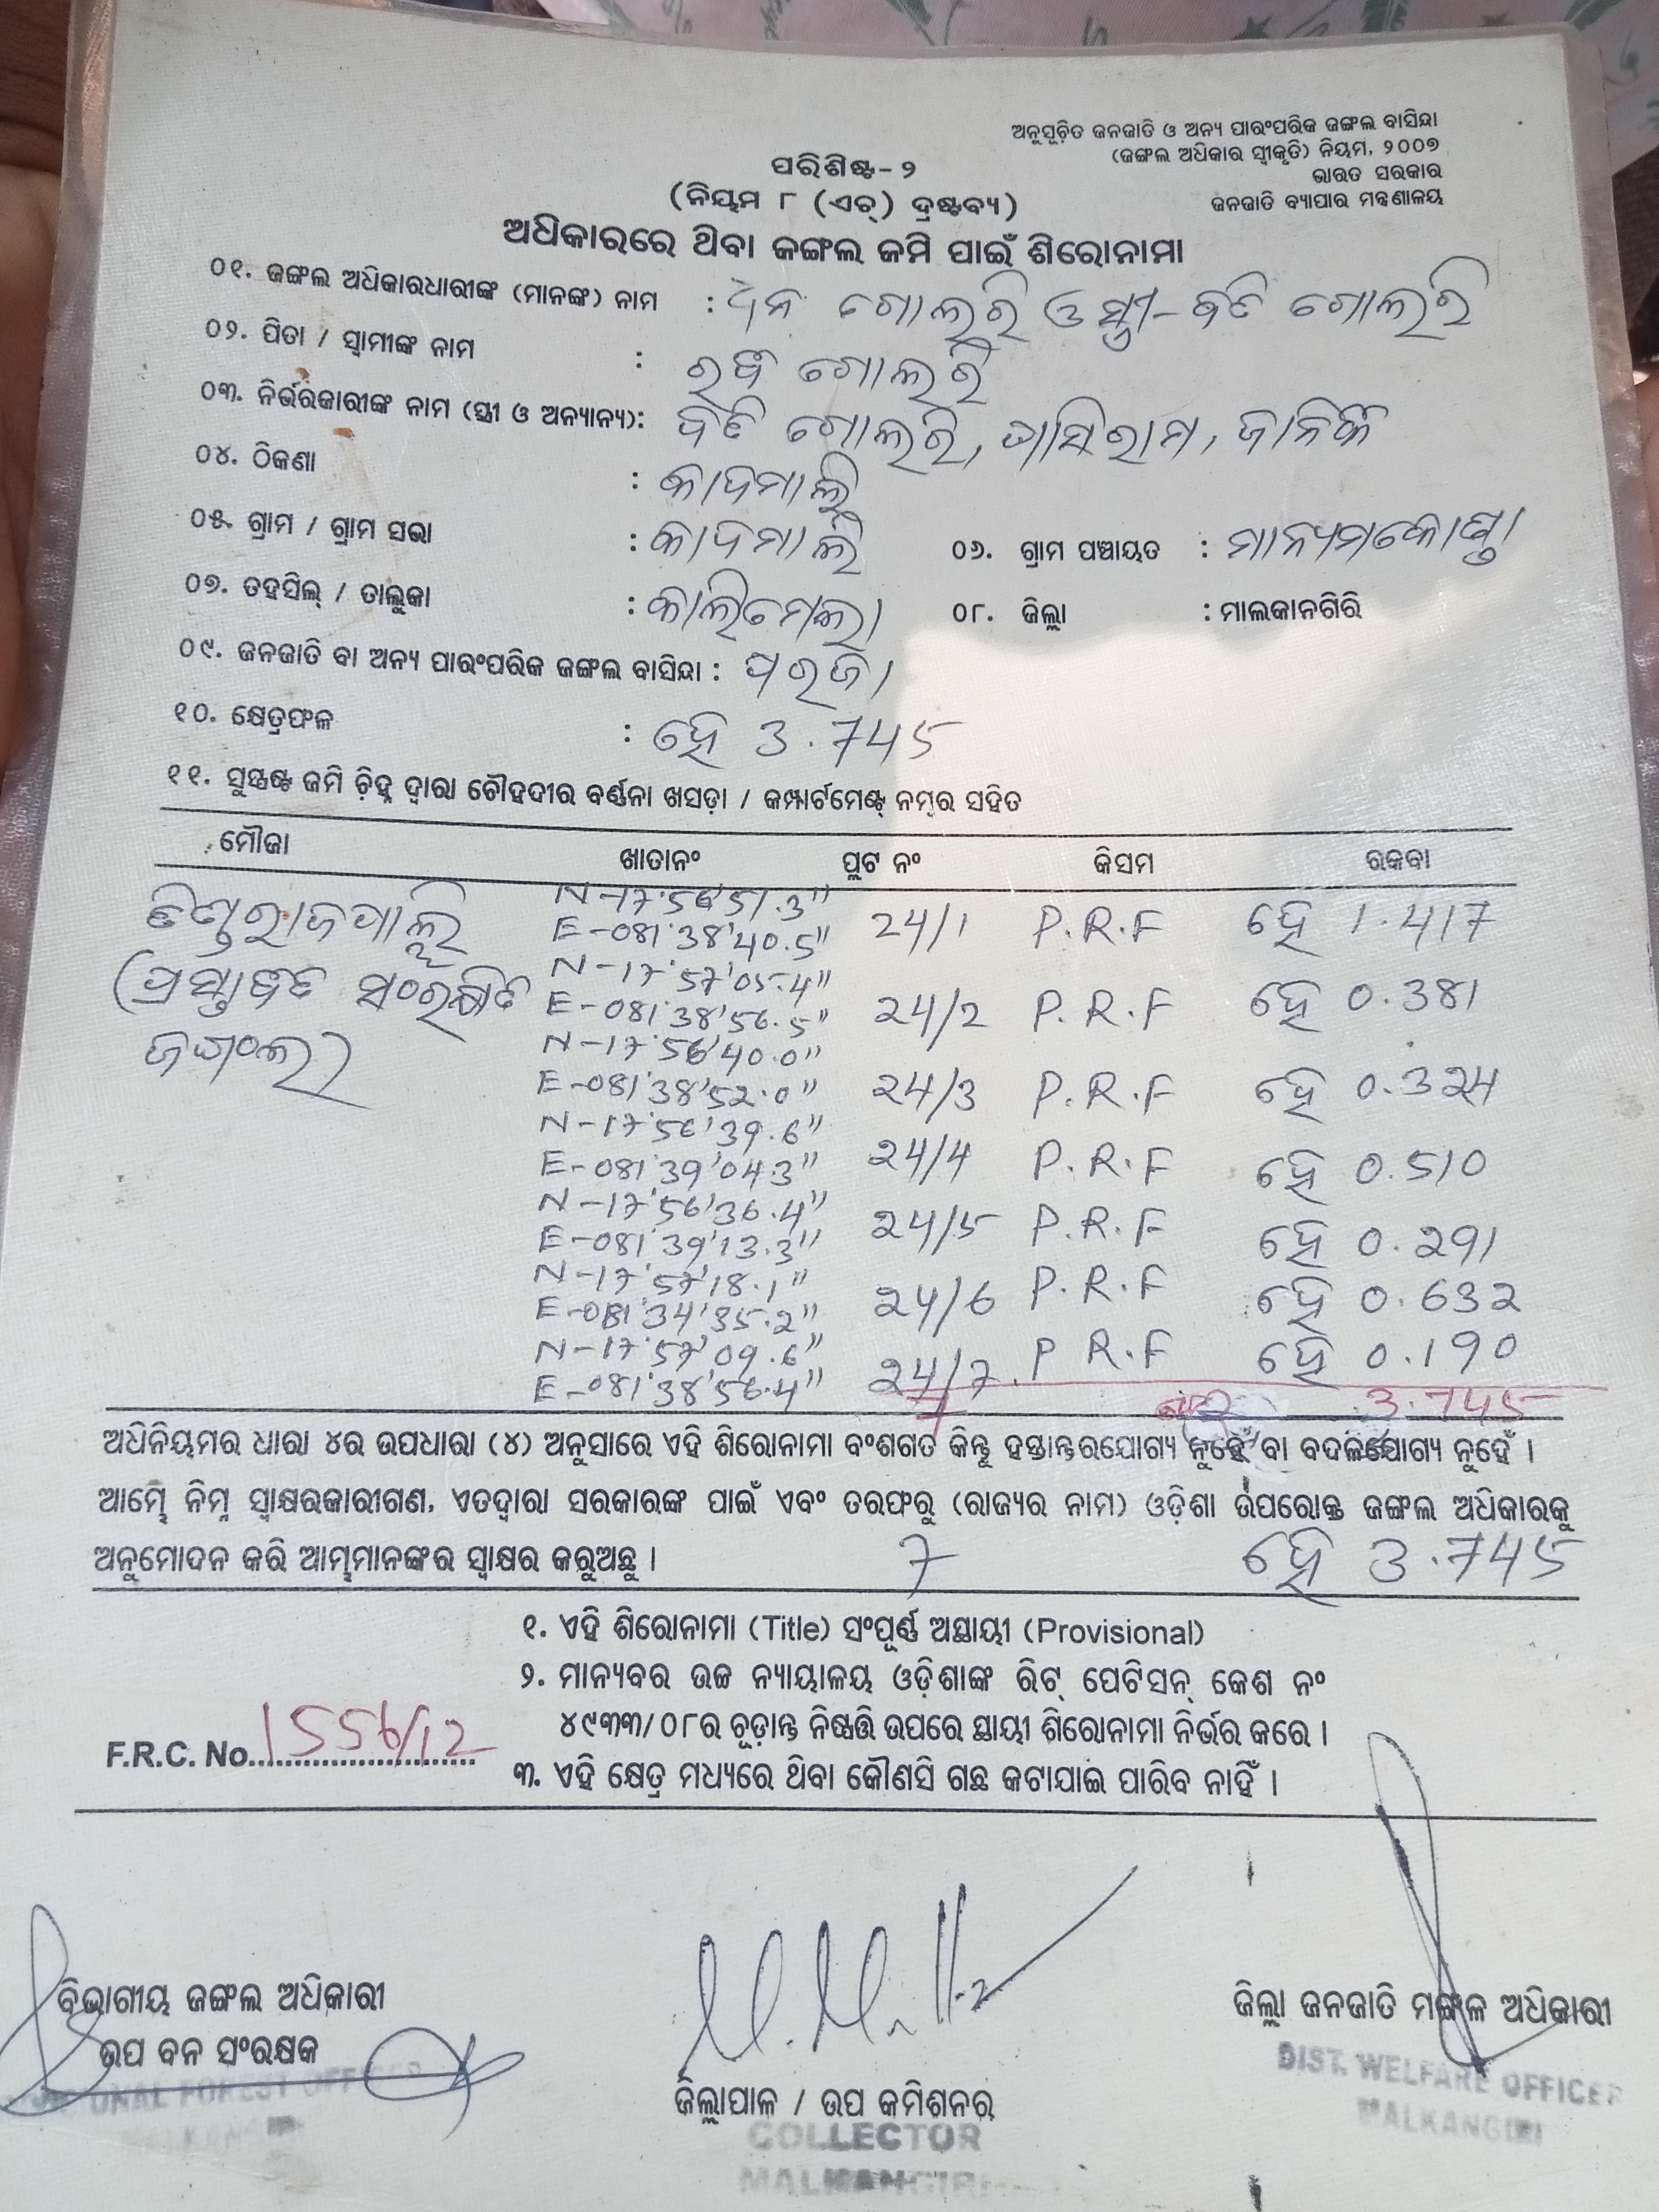 ଅନୁସୂଚିତ ଜନଜାତି ଓ ଅନ୍ୟ ପାରଂପରିକ ଜଙ୍ଗଲ ବାସିନ୍ଦା
(ଜଙ୍ଗଲ ଅଧିକାର ସ୍ୱୀକୃତି) ନିୟମ, ୨୦୦୭
ଭାରତ ସରକାର
ଜନଜାତି ବ୍ୟାପାର ମନ୍ତ୍ରଣାଳୟ
ପରିଶିଷ୍ଟ-୨
(ନିୟମ ୮ (ଏଚ୍) ଦ୍ରଷ୍ଟବ୍ୟ)
ଅଧିକାରରେ ଥିବା ଜଙ୍ଗଲ ଜମି ପାଇଁ ଶିରୋନାମା
୦୧. ଜଙ୍ଗଲ ଅଧିକାରଧାରୀଙ୍କ (ମାନଙ୍କ) ନାମ : ଧନ ଗୋଲରି ଓ ସ୍ତ୍ରୀ- ଗୋଲରି
୦୨. ପିତା / ସ୍ୱାମୀଙ୍କ ନାମ : ଗୋଲରି
୦୩. ନିର୍ଭରକାରୀଙ୍କ ନାମ (ସ୍ତ୍ରୀ ଓ ଅନ୍ୟାନ୍ୟ): ଗୋଲରି,
୦୪. ଠିକଣା : କାଦମାଲୁ
୦୫. ଗ୍ରାମ / ଗ୍ରାମ ସଭା : କାଦମାଲି ୦୬. ଗ୍ରାମ ପଞ୍ଚାୟତ : ମାନ୍ୟମକୋଣ୍ଡା
୦୭. ତହସିଲ୍ / ତାଲୁକା : କାଲିମେଲା ୦୮. ଜିଲ୍ଲା : ମାଲକାନଗିରି
୦୯. ଜନଜାତି ବା ଅନ୍ୟ ପାରଂପରିକ ଜଙ୍ଗଲ ବାସିନ୍ଦା : ପରଜା
୧୦. କ୍ଷେତ୍ରଫଳ : ହେ 3.745
୧୧. ସୁସ୍ପଷ୍ଟ ଜମି ଚିହ୍ନ ଦ୍ୱାରା ଚୌହଦୀର ବର୍ଣ୍ଣନା ଖସଡ଼ା / କମ୍ପାର୍ଟମେଣ୍ଟ୍ ନମ୍ବର ସହିତ
ମୌଜା ଖାତାନଂ ପ୍ଲଟ ନଂ କିସମ ରକବା
N-17°56'51.3"
E-081°38'40.5" 24/1 P.R.F ହେ 1.417
N-17°57'05.4"
(ପ୍ରସ୍ତାବିତ ସଂରକ୍ଷିତ E-081°38'56.5" 24/2 P.R.F ହେ 0.381
ଜଙ୍ଗଲ) N-17°56'40.0"
E-081°38'52.0" 24/3 P.R.F ହେ 0.324
N-17°56'39.6"
E-081°39'04.3" 24/4 P.R.F ହେ 0.510
N-17°56'36.4"
E-081°39'13.3" 24/5 P.R.F ହେ 0.291
N-17°57'18.1"
E-081°34'35.2" 24/6 P.R.F ହେ 0.632
N-17°57'09.6"
E-081°38'56.4" 24/7 P.R.F ହେ 0.190
7 3.745
ଅଧିନିୟମର ଧାରା ୪ର ଉପଧାରା (୪) ଅନୁସାରେ ଏହି ଶିରୋନାମା ବଂଶଗତ କିନ୍ତୁ ହସ୍ତାନ୍ତରଯୋଗ୍ୟ ନୁହେଁ ବା ବଦଳଯୋଗ୍ୟ ନୁହେଁ ।
ଆମ୍ଭେ ନିମ୍ନ ସ୍ୱାକ୍ଷରକାରୀଗଣ, ଏତଦ୍ୱାରା ସରକାରଙ୍କ ପାଇଁ ଏବଂ ତରଫରୁ (ରାଜ୍ୟର ନାମ) ଓଡ଼ିଶା ଉପରୋକ୍ତ ଜଙ୍ଗଲ ଅଧିକାରକୁ
ଅନୁମୋଦନ କରି ଆମ୍ଭମାନଙ୍କର ସ୍ୱାକ୍ଷର କରୁଅଛୁ । 7 ହେ 3.745
୧. ଏହି ଶିରୋନାମା (Title) ସଂପୂର୍ଣ୍ଣ ଅସ୍ଥାୟୀ (Provisional)
୨. ମାନ୍ୟବର ଉଚ୍ଚ ନ୍ୟାୟାଳୟ ଓଡ଼ିଶାଙ୍କ ରିଟ୍ ପେଟିସନ୍ କେଶ ନଂ
୪୯୩୩/୦୮ର ଚୂଡ଼ାନ୍ତ ନିଷ୍ପତ୍ତି ଉପରେ ସ୍ଥାୟୀ ଶିରୋନାମା ନିର୍ଭର କରେ ।
F.R.C. No. 1556/12
୩. ଏହି କ୍ଷେତ୍ର ମଧ୍ୟରେ ଥିବା କୌଣସି ଗଛ କଟାଯାଇ ପାରିବ ନାହିଁ ।
ବିଭାଗୀୟ ଜଙ୍ଗଲ ଅଧିକାରୀ
ଉପ ବନ ସଂରକ୍ଷକ
FOREST OFFICER
ଜିଲ୍ଲାପାଳ / ଉପ କମିଶନର୍
COLLECTOR
MALKANGIRI
ଜିଲ୍ଲା ଜନଜାତି ମଙ୍ଗଳ ଅଧିକାରୀ
DIST. WELFARE OFFICER
MALKANGIRI